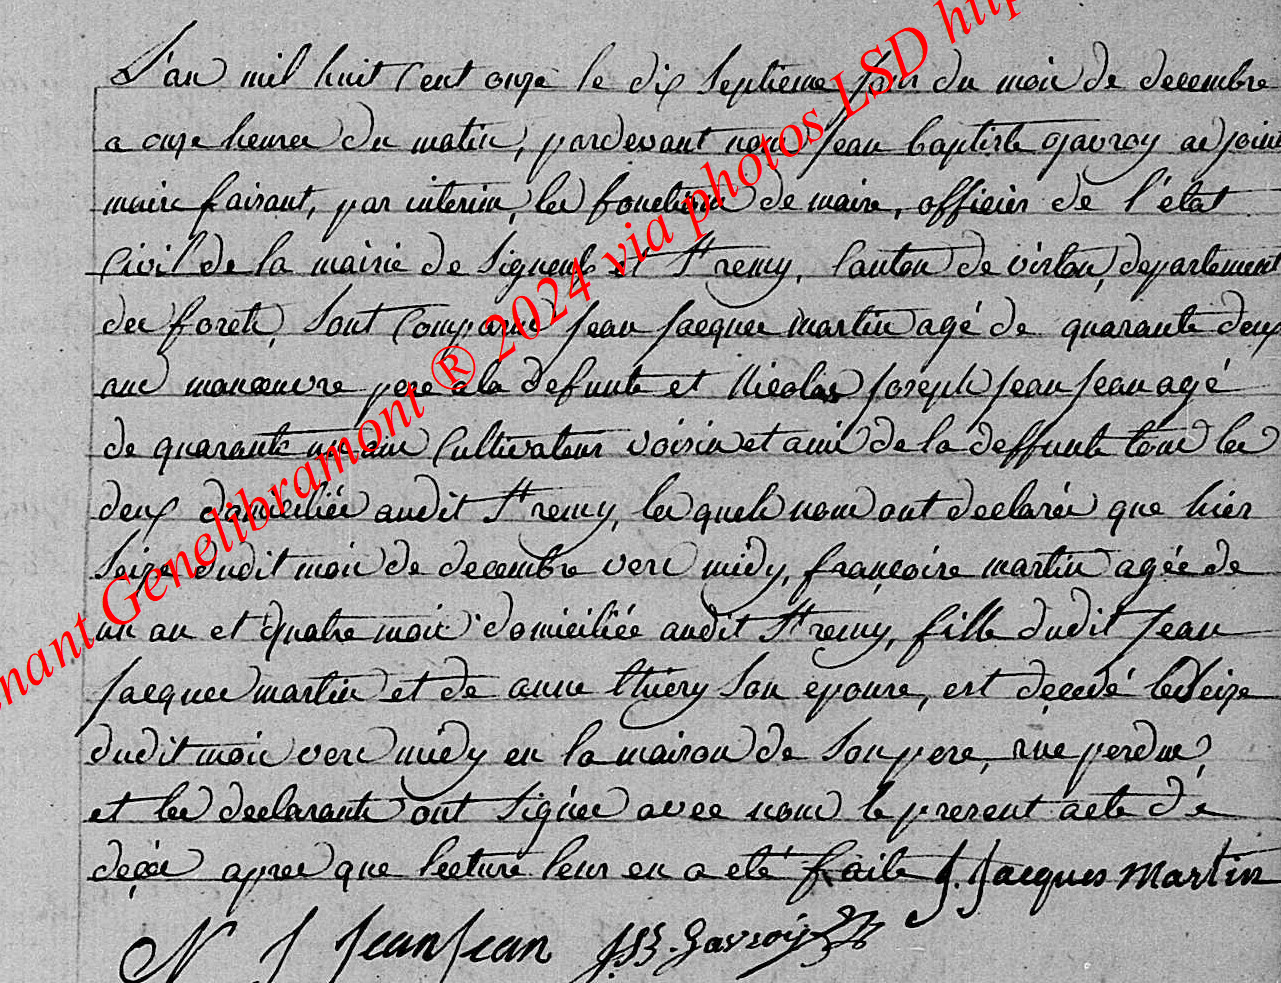 L'an mil huit Cent onze le dix Septieme Jour du mois de decembre
a onze heures du matin, pardevant nous Jean baptiste gavroy adjoint
maire faisant, par interim, les fonctions de maire, officier de l'état
Civil de la mairie de Signeulx et St remy, Canton de virton, departement
des forets, Sont Comparus Jean Jacques martin agé de quarante deux
ans manoeuvre pere a la defunte et Nicolas Joseph Jean Jean agé
de quarante un ans Cultivateur voisin et ami de la deffunte tous les
deux domiciliés audit St remy, les quels nous ont declarés que hier
Seize dudit mois de decembre vers midy, françoise martin agée de
un an et quatre mois domiciliée audit St remy, fille dudit Jean
Jacques martin et de anne thiery Son epouse, est deçedé le Seize
dudit mois vers midy en la maison de Son pere, rue perdue,
et les declarants ont Signés avec nous le present acte de
deçés apres que lecture leur en a eté faite J. Jacques Martin
N J Jean Jean JB. Gavroy
nant Genelibramont ® 2024 via photos LSD http